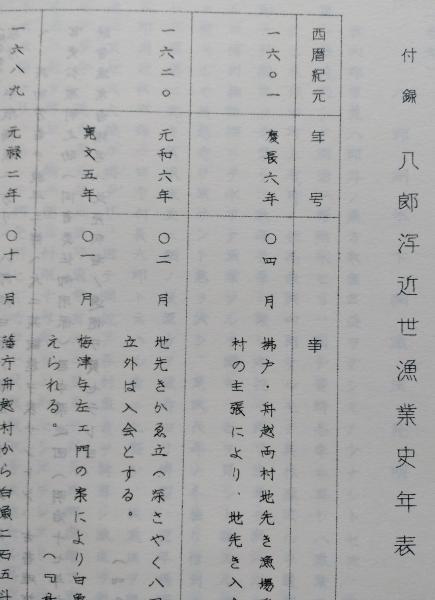 付録 八郎潟近世漁業史年表
西暦紀元 年号 事
一六〇一 慶長六年 〇四月 払戸・舟越両村地先き漁場
村の主張により、地先き入
一六二〇 元和六年 〇二月 地先きかゑ立へ深さやく八
立外は入会とする。
寛文五年 〇一月 梅津与左エ門の案により白魚
えられる。
一六八九 元禄二年 〇十一月 藩庁舟越村から白魚二石五斗